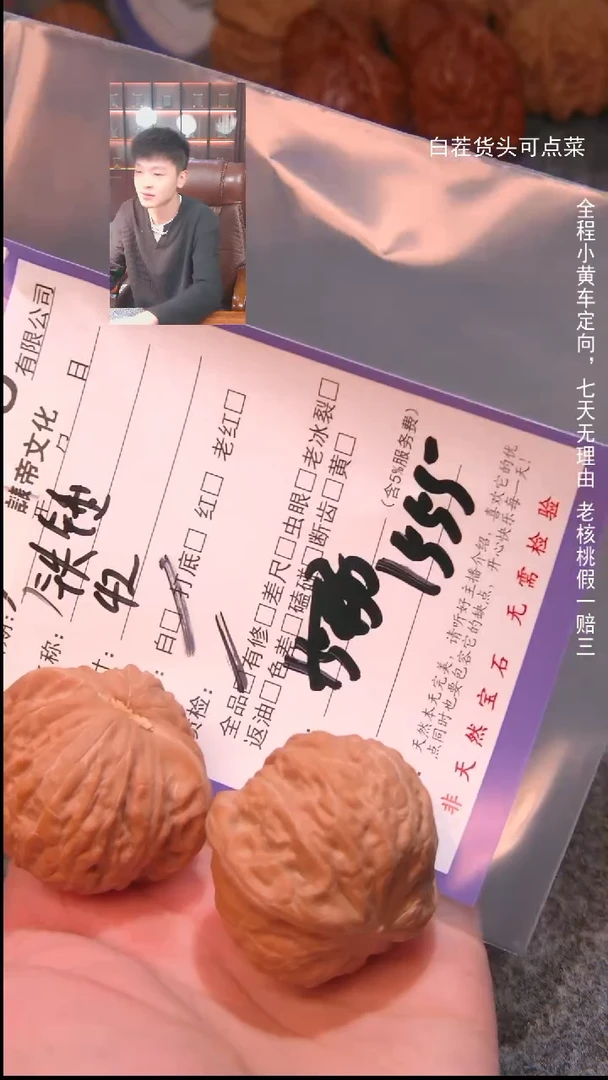 白茬货头可点菜
全程小黄车定向，七天无理由 老核桃假一赔三
有限公司
讖帝文化
日
铁锤
42
白□打底□ 红□ 老红□
质检：
全品□有修□差尺□虫眼□老冰裂□
返油□色差□磕□断齿□黄□
（含5%服务费）
1555
天然本无完美，请听好主播介绍，喜欢它的优
点同时也要包容它的缺点，开心快乐每一天！
非天然宝石 无需检验